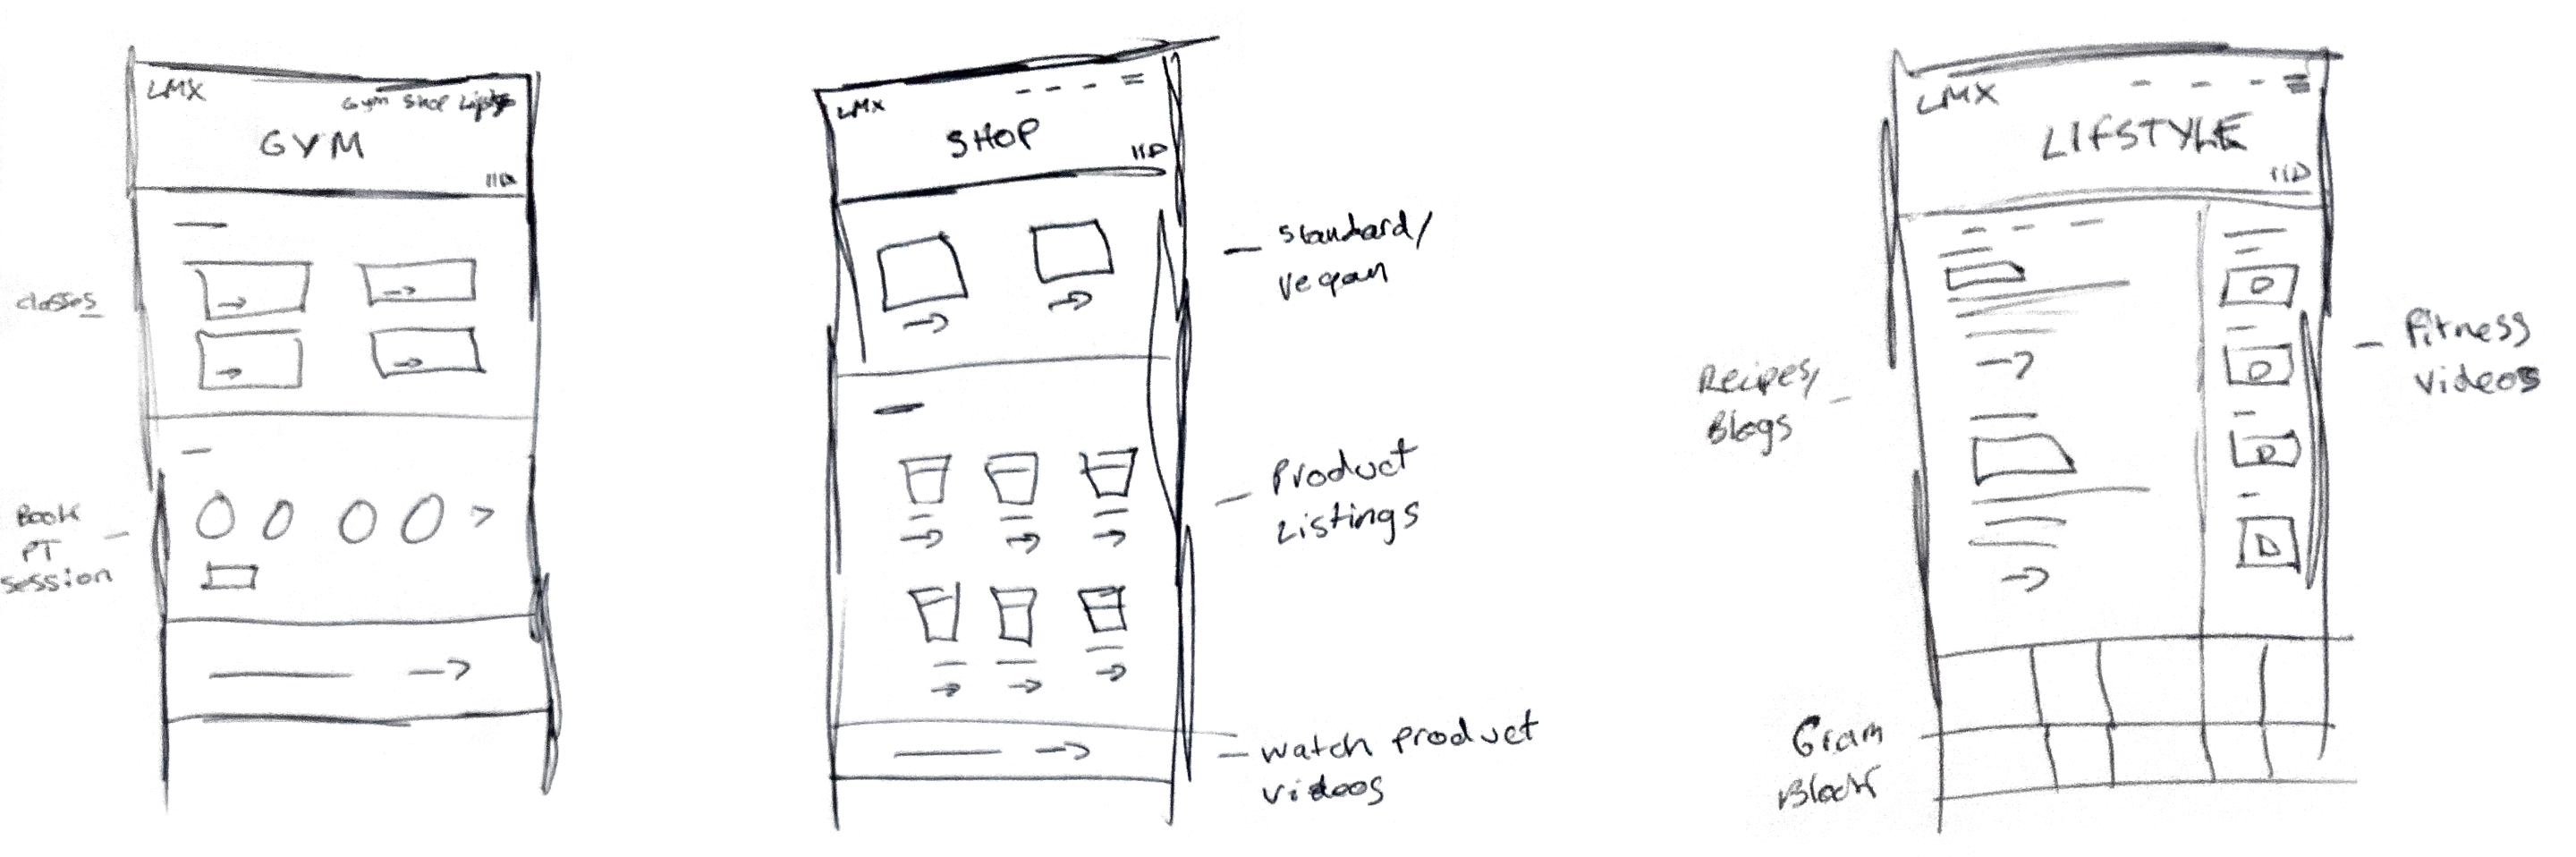 LMX
Gym Shop
GYM
classes
Book
PT
session
LMX
SHOP
standard/
vegan
Product
Listings
watch product
videos
LMX
LIFSTYLE
Recipes/
Blogs
Fitness
videos
Gram
Block